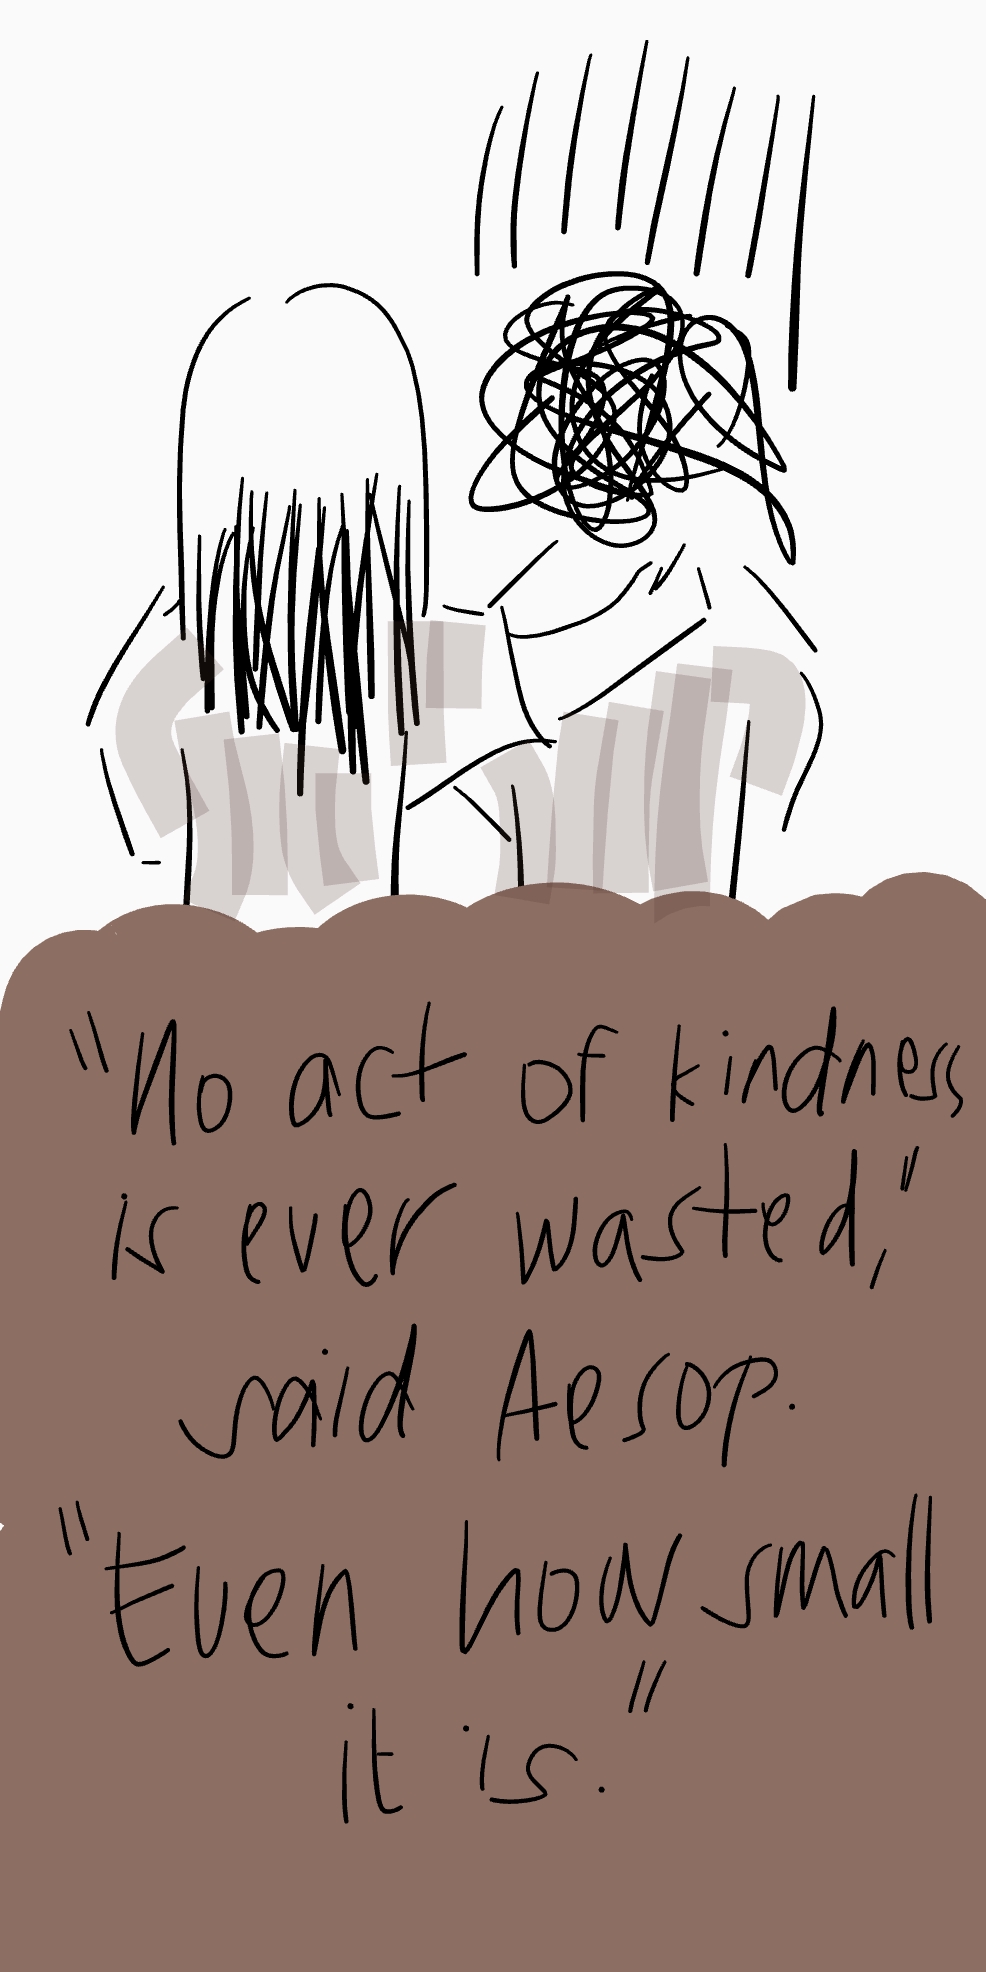 "No act of kindness
is ever wasted,"
said Aesop.
"Even how small
it is."